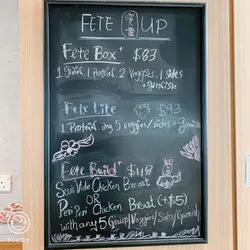 FETE UP
Fete Box+ $83
1 grain, 1 protein, 2 Veggies, 1 sides
+ garnish
Fete Lite $93
1 Protein, any 5 veggies/sides + garnish
Fete Build+ $118
Sous Vide Chicken Breast
OR
Peri Peri Chicken Breast (+$5)
with any 5 Grain/Veggies/Sides/Garnish